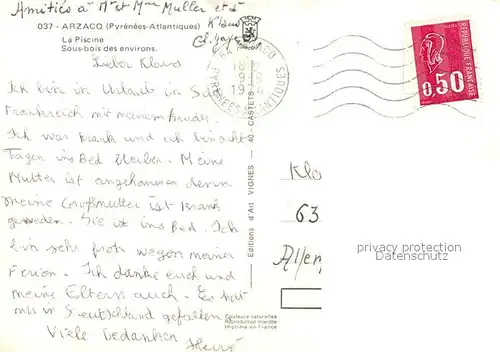 Amitiés à Mr et Mme Muller et à
Klaus
037 - ARZACQ (Pyrénées-Atlantiques)
La Piscine
Sous-bois des environs.
Lieber Klaus
Ich bin in Urlaub in Süd
Frankreich mit meinem Bruder.
Ich war krank und ich bin acht
Tagen ins Bed bleiben. Meine
Mutter ist angekommen denn
meine Großmutter ist krank
geworden. Sie ist ins Bed. Ich
bin sehr froh wegen meiner
Ferien. Ich danke euch und
meine Eltern auch. Es hat
mir in Deutschland gefallen
Viele Gedanken
Hervé
Editions d'Art VIGNES - 40 - CASTETS
Couleurs naturelles
Reproduction interdite
Imprimé en France
RÉPUBLIQUE FRANÇAISE
0,50
Klo
63
Allem
privacy protection
Datenschutz